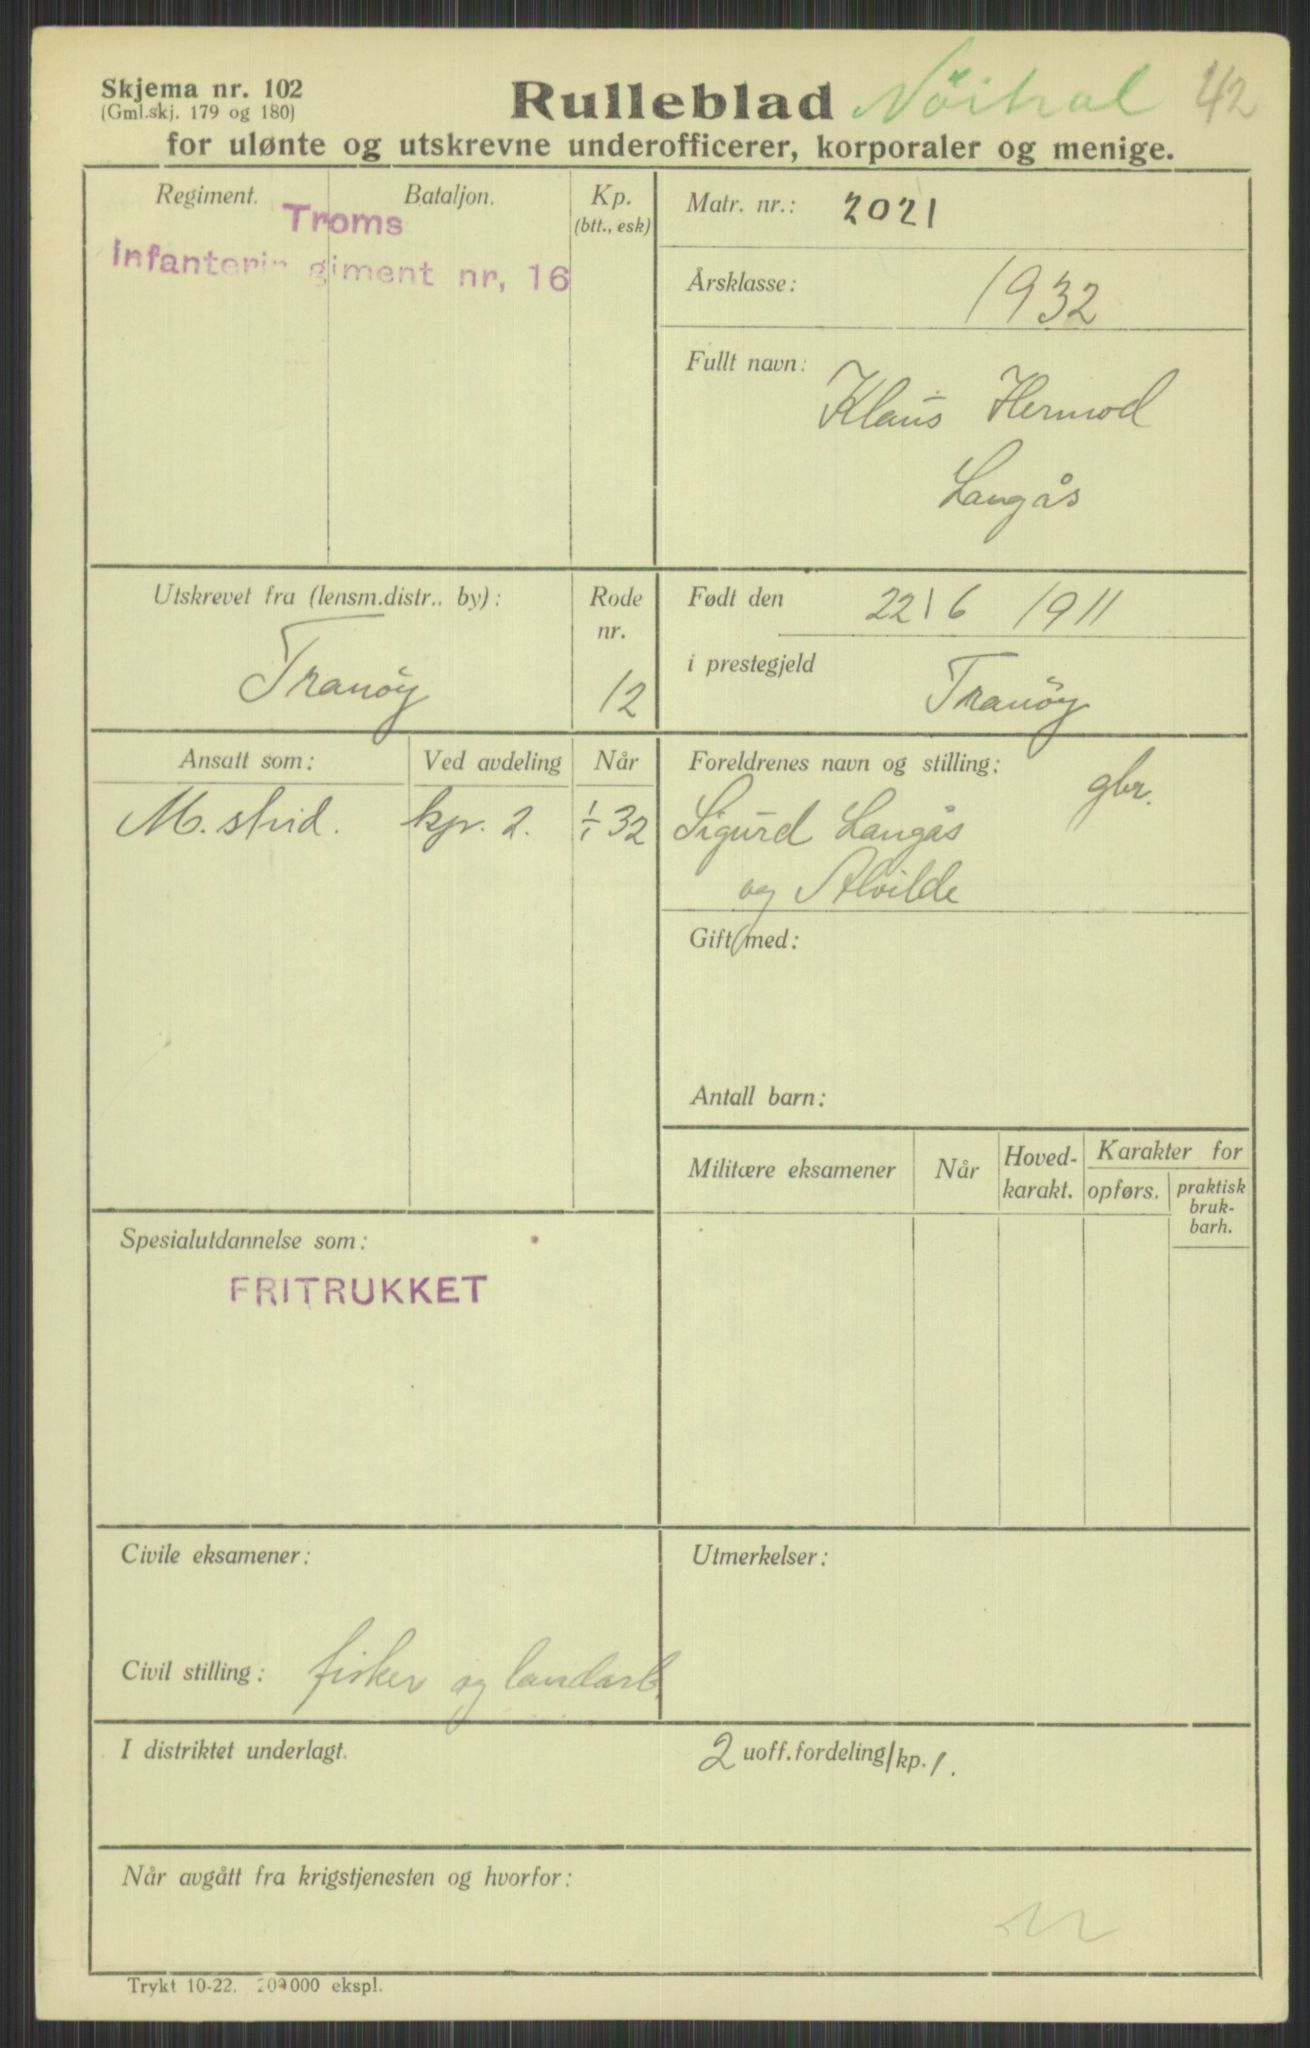 Skjema nr. 102
(Gml.skj. 179 og 180)
Rulleblad
42
for ulønte og utskrevne underofficerer, korporaler og menige.
Regiment.
Bataljon.
Kp.
(btt., esk)
Troms
Infanteri giment nr, 16
Matr. nr.: 2021
Årsklasse: 1932
Fullt navn:
Klaus Hermod
Langås
Utskrevet fra (lensm.distr.. by):
Tranöy
Rode
nr.
12
Født den 22/6 1911
i prestegjeld Tranöy
Ansatt som:
Ved avdeling
Når
M. strid. kp. 2. 1/1 32
Foreldrenes navn og stilling:
gbr.
Sigurd Langås
og Alvilde
Gift med:
Antall barn:
Militære eksamener
Når
Hoved-
karakt.
Karakter for
opførs.
praktisk
bruk-
barh.
Spesialutdannelse som:
FRITRUKKET
Civile eksamener:
Utmerkelser:
Civil stilling: fisker og landarb.
I distriktet underlagt.
2 uoff.fordeling/kp. 1.
Når avgått fra krigstjenesten og hvorfor:
Trykt 10-22. 200000 ekspl.